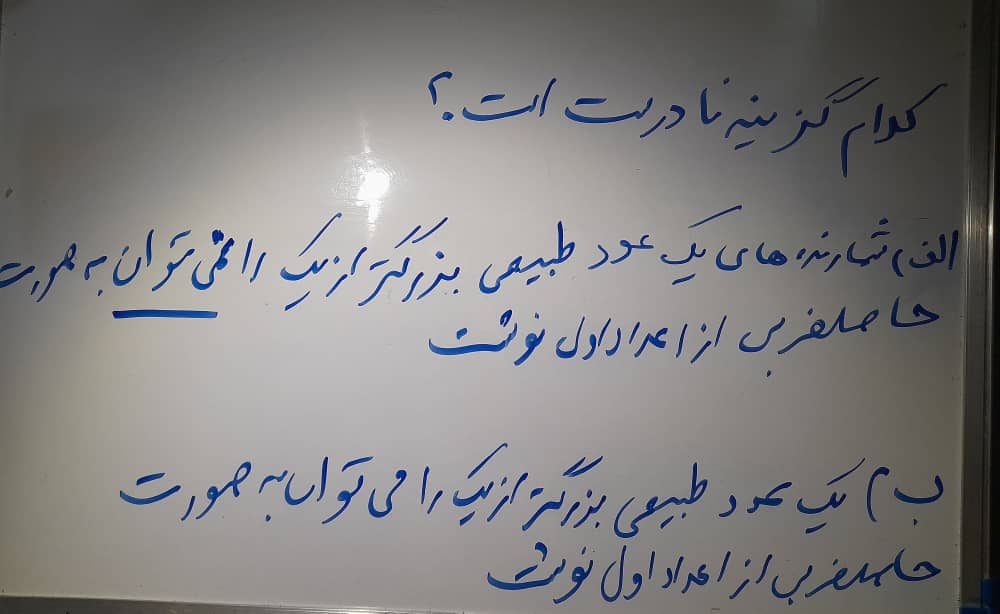 کدام گزینه نادرست است؟
الف) شمارنده های یک عدد طبیعی بزرگتر از یک را نمی توان به صورت
حاصلضربی از اعداد اول نوشت
ب) یک عدد طبیعی بزرگتر از یک را می توان به صورت
حاصلضربی از اعداد اول نوشت